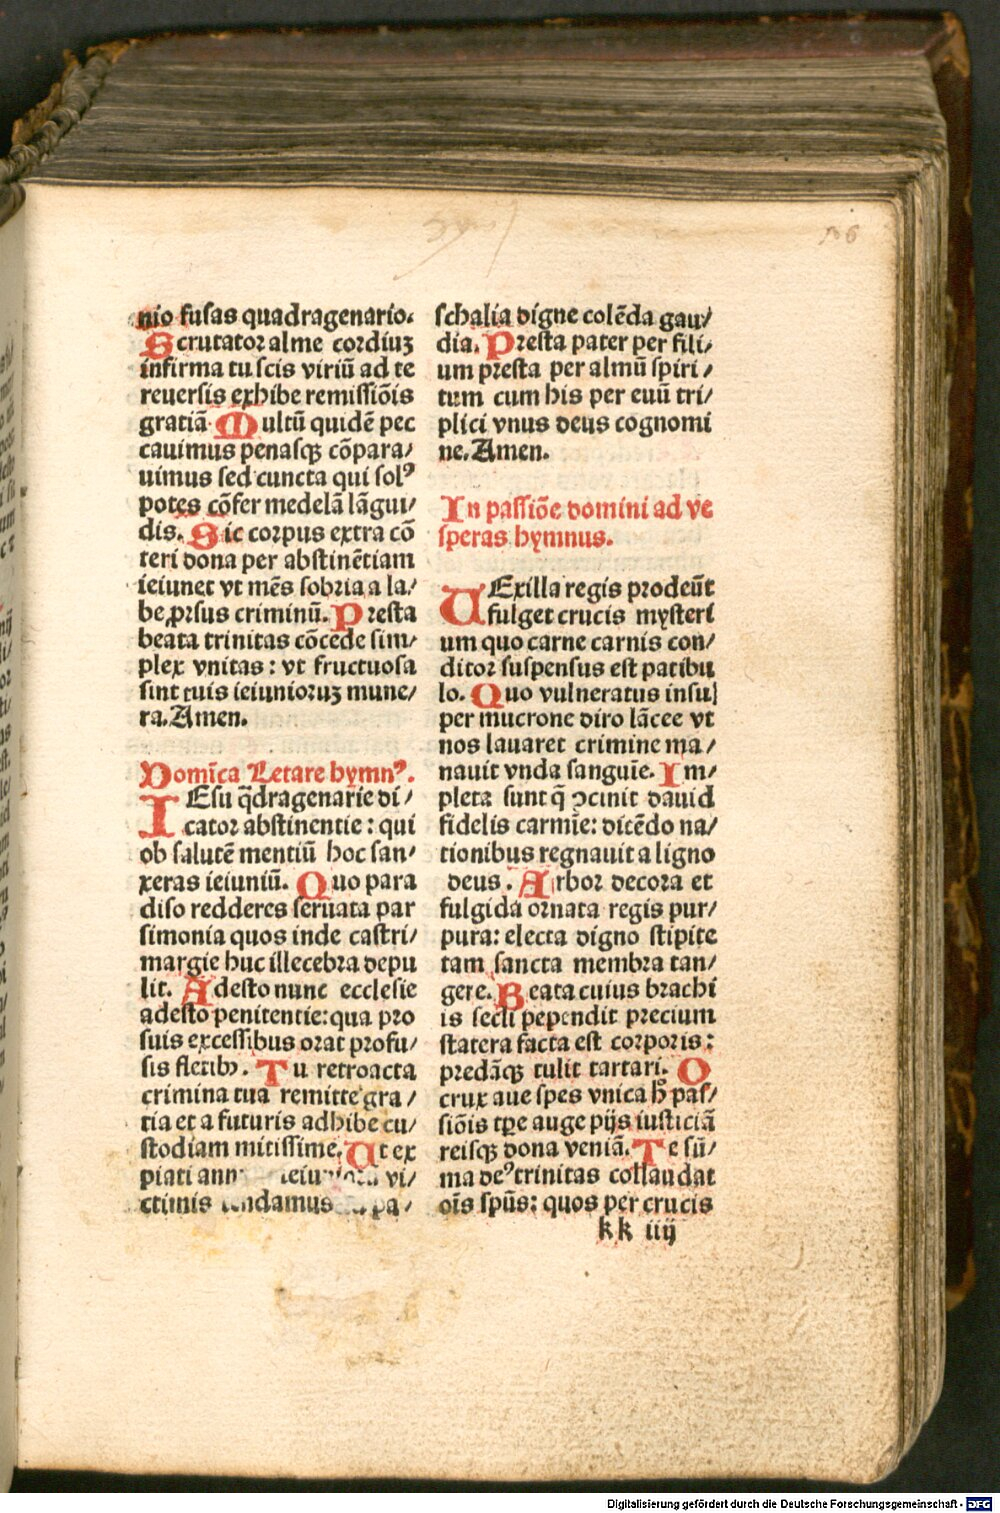 nio fusas quadragenario.
Scrutator alme cordiuꝫ
infirma tu scis viriū ad te
reuersis exhibe remissiōis
gratiā. Multū quidē pec
cauimus penasqꝫ cōpara/
uimus sed cuncta qui solꝰ
potes cōfer medelā lāgui/
dis. Sic corpus extra cō
teri dona per abstinētiam
ieiunet vt mēs sobria a la/
be ꝓrsus criminū. Presta
beata trinitas cōcede sim/
plex vnitas: vt fructuosa
sint tuis ieiunioruꝫ mune/
ra. Amen.
Domīca Letare hymnꝰ.
IEsu q̄dragenarie di/
cator abstinentie: qui
ob salutē mentiū hoc san/
xeras ieiuniū. Quo para
diso redderes seruata par
simonia quos inde castri/
margie huc illecebra depu
lit. Adesto nunc ecclesie
adesto penitentie: qua pro
suis excessibus orat profu/
sis fletibꝰ. Tu retroacta
crimina tua remitte gra/
tia et a futuris adhibe cu/
stodiam mitissime. Ut ex
piati vi/
ctimis pa/
schalia digne colēda gau/
dia. Presta pater per fili/
um presta per almū spiri/
tum cum his per euū tri/
plici vnus deus cognomi
ne. Amen.
In passiōe domini ad ve
speras hymnus.
UExilla regis prodeūt
fulget crucis mysteri
um quo carne carnis con/
ditor suspensus est patibu
lo. Quo vulneratus insu
per mucrone diro lācee vt
nos lauaret crimine ma/
nauit vnda sanguīe. Im/
pleta sunt q̄ ꝯcinit dauid
fidelis carmīe: dicēdo na/
tionibus regnauit a ligno
deus. Arbor decora et
fulgida ornata regis pur/
pura: electa digno stipite
tam sancta membra tan/
gere. Beata cuius brachi
is secli pependit precium
statera facta est corporis:
predāqꝫ tulit tartari. O
crux aue spes vnica hꝰ pas/
siōis tꝑe auge pijs iusticiā
reisqꝫ dona veniā. Te sū/
ma deꝰ trinitas collaudat
oīs spūs: quos per crucis
kk iiij
Digitalisierung gefördert durch die Deutsche Forschungsgemeinschaft - DFG